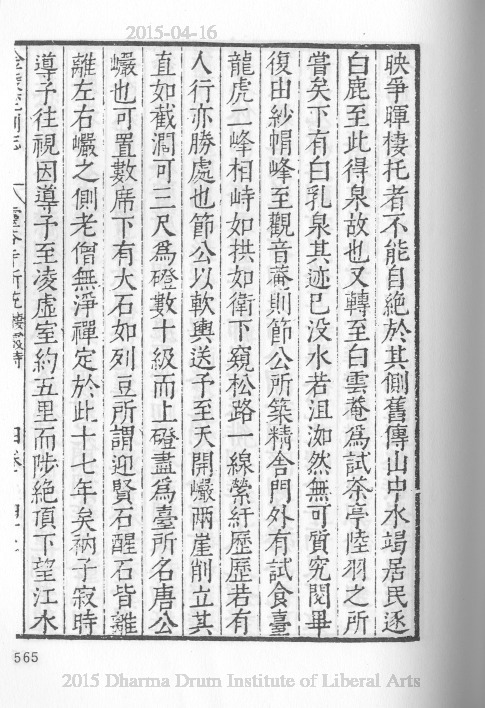 2015-04-16
映爭暉棲托者不能自絕於其側舊傳山中水竭居民逐
白鹿至此得泉故也又轉至白雲菴為試茶亭陸羽之所
嘗矣下有白乳泉其迹已没水若沮洳然無可質究閱畢
復由紗帽峰至觀音菴則節公所築精舍門外有試食臺
龍虎二峰相峙如拱如衛下窺松路一線縈紆歷歷若有
人行亦勝處也節公以軟輿送予至天開巖兩崖削立其
直如截澗可三尺為磴數十級而上磴盡為臺所名唐公
巖也可置數席下有大石如列豆所謂迎賢石醒石皆離
離左右巖之側老僧無淨禪定於此十七年矣衲子寂時
導子往視因導子至凌虛室約五里而陟絕頂下望江水
565
2015 Dharma Drum Institute of Liberal Arts